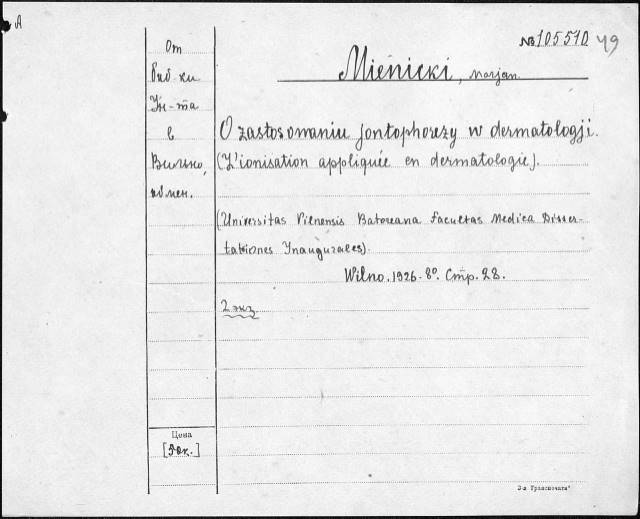 A
№ 105510 49
Mienicki, Marjan.
От
биб-ки
Ун-та
в
Вильно,
обмен.
O zastosowaniu jontophorezy w dermatologji.
(L'ionisation appliquée en dermatologie).
(Universitas Vilnensis Batoreana Facultas Medica Disser-
tationes Inaugurales).
Wilno. 1926. 8°. Стр. 28.
2 экз
Цена
[50к.]
3-я "Транспечать"